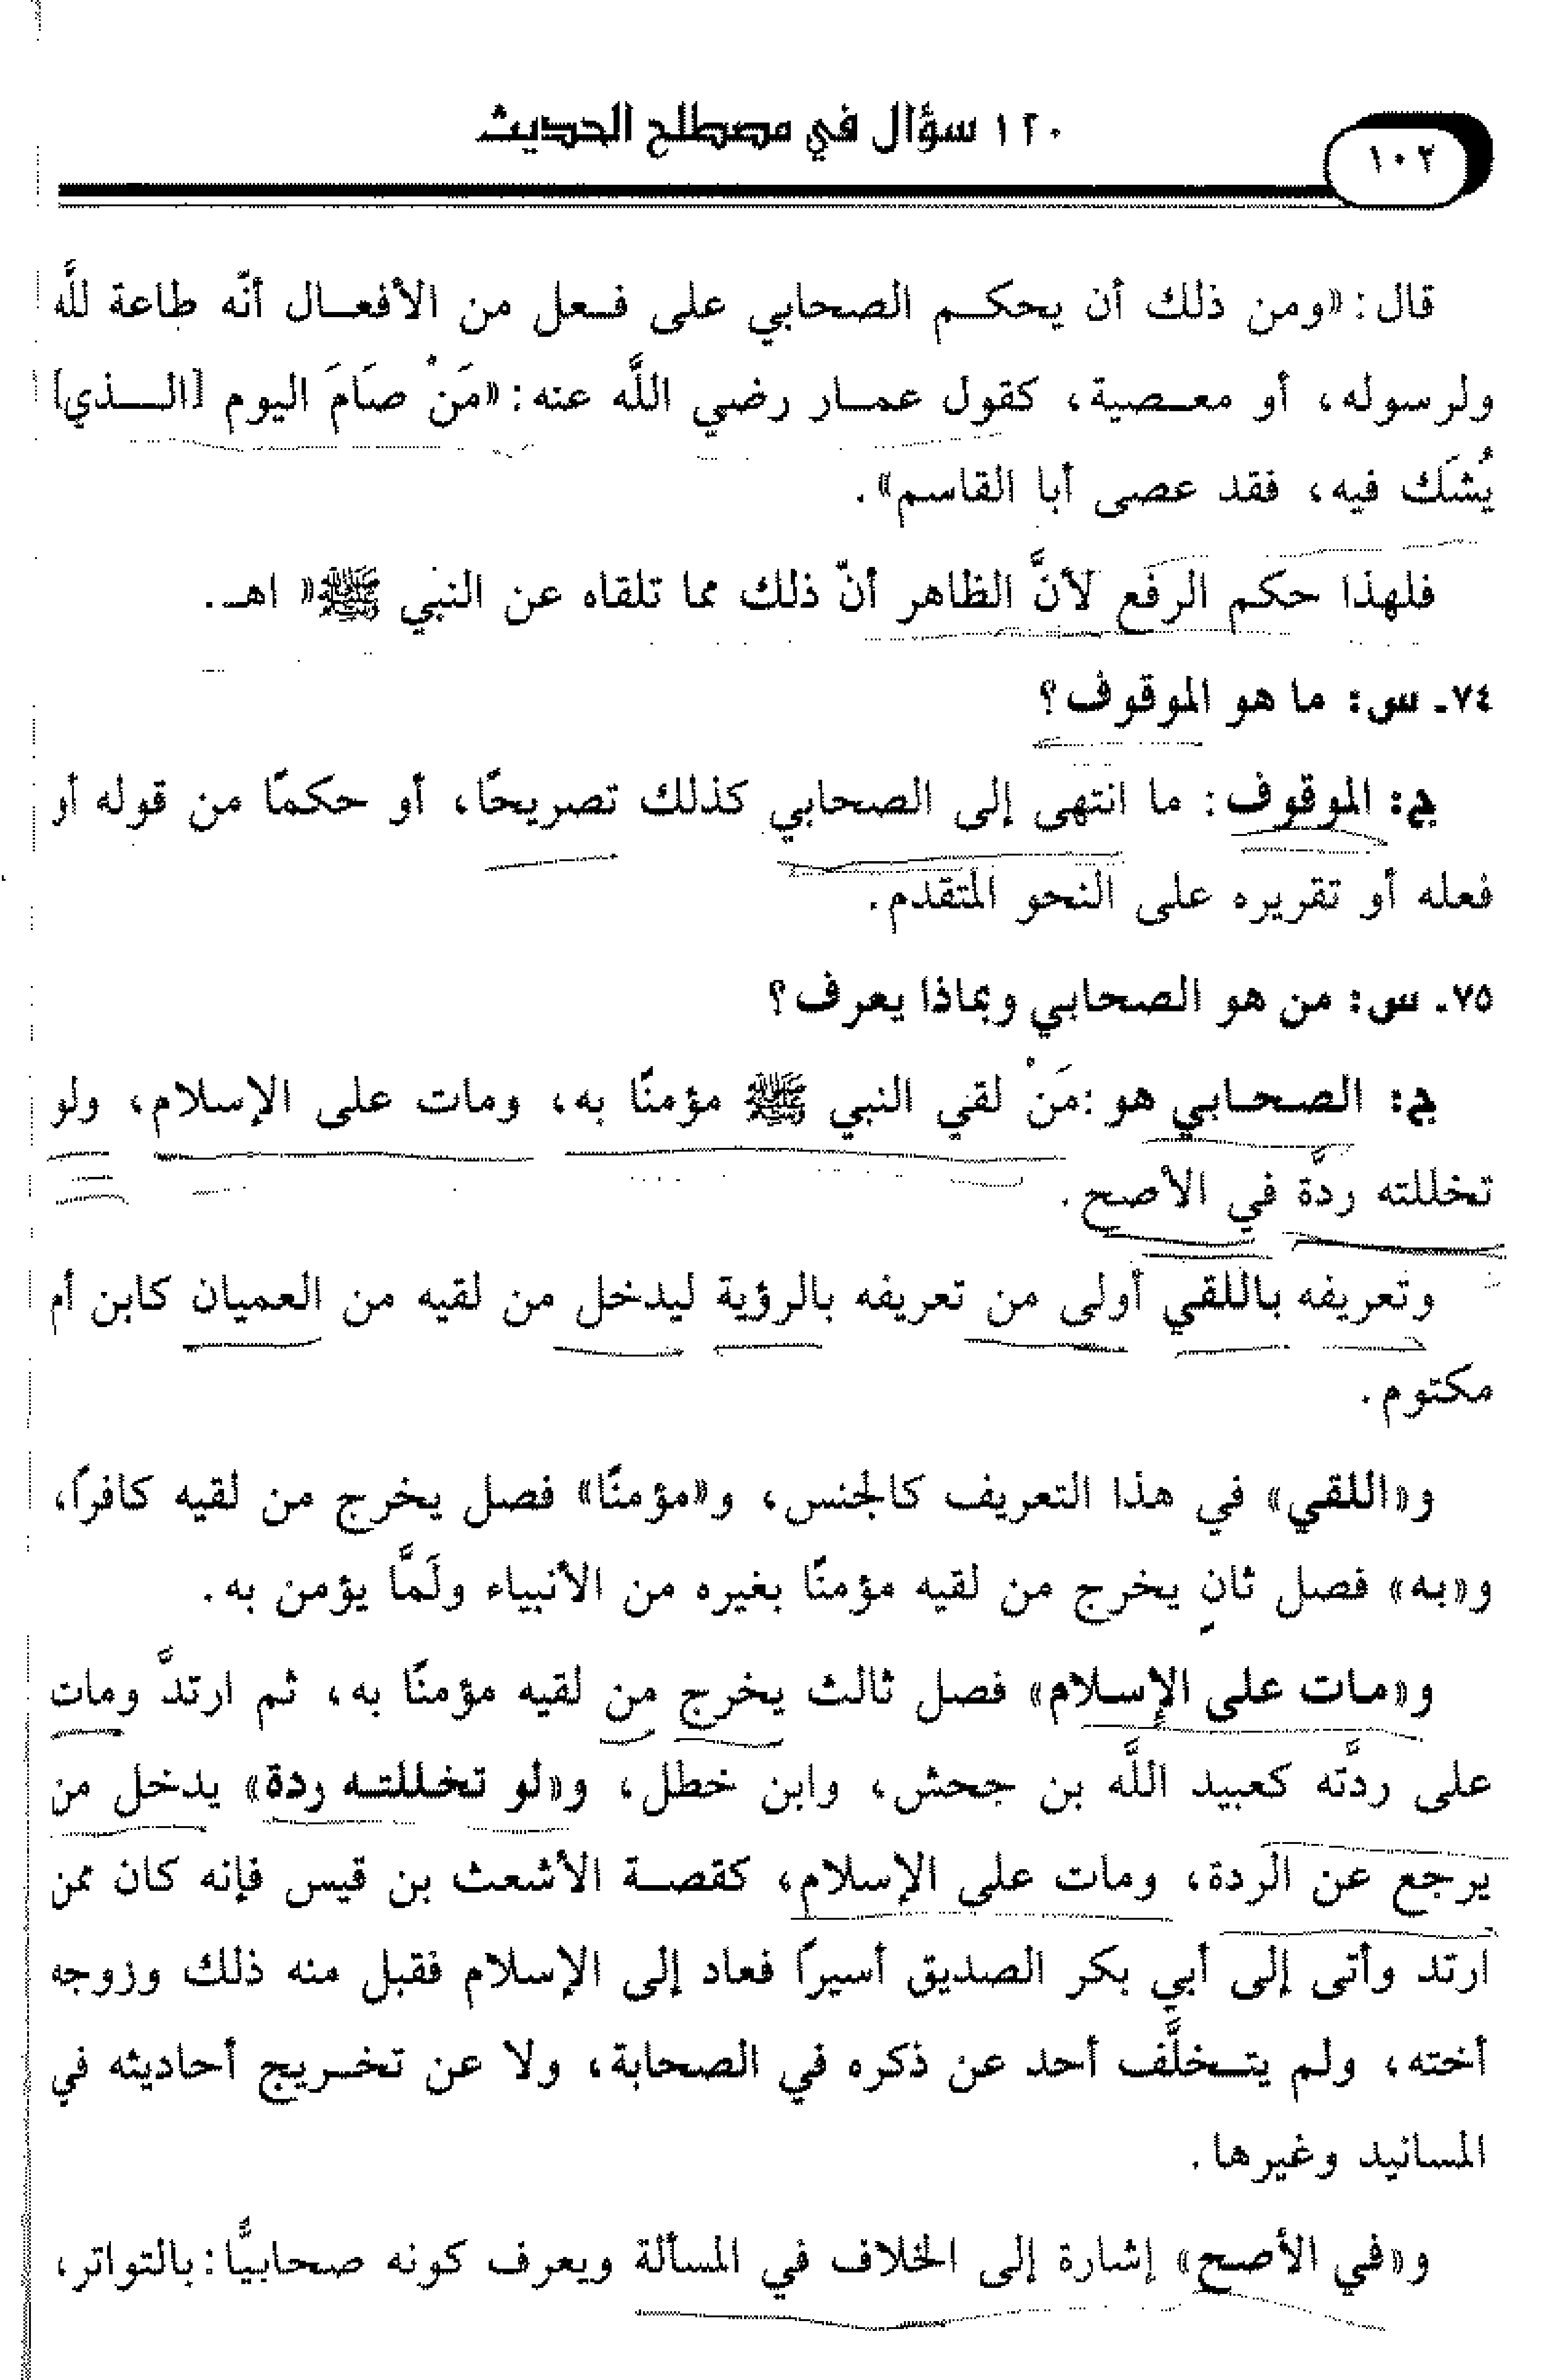 ١٢٠ سؤال في مصطلح الحديث
١٠٢
قال: «ومن ذلك أن يحكـم الصحابي على فـعل من الأفعـال أنّه طاعة للَّه
ولرسوله، أو معـصية، كقول عمـار رضي اللَّه عنه: «مَنْ صَامَ اليوم [الــذي]
يُشَك فيه، فقد عصى أبا القاسم».
فلهذا حكم الرفع لأنَّ الظاهر أنّ ذلك مما تلقاه عن النبي ﷺ» اهـ.
٧٤ـ س: ما هو الموقوف؟
ج: الموقوف: ما انتهى إلى الصحابي كذلك تصريحًا، أو حكمًا من قوله أو
فعله أو تقريره على النحو المتقدم.
٧٥ـ س: من هو الصحابي وبماذا يعرف؟
ج: الصـحـابـي هو: مَنْ لقي النبي ﷺ مؤمنًا به، ومات على الإسلام، ولو
تخللته ردَّة في الأصح.
وتعريفه باللقي أولى من تعريفه بالرؤية ليدخل من لقيه من العميان كابن أم
مكتوم.
و«اللقي» في هذا التعريف كالجنس، و«مؤمنًا» فصل يخرج من لقيه كافرًا،
و«به» فصل ثانٍ يخرج من لقيه مؤمنًا بغيره من الأنبياء ولَمَّا يؤمن به.
و«مـات على الإسـلام» فصل ثالث يخرج من لقيه مؤمنًا به، ثم ارتدَّ ومات
على ردَّته كعبيد اللَّه بن جحش، وابن خطل، و«لو تخـللتـه ردة» يدخل من
يرجع عن الردة، ومات على الإسلام، كقصـة الأشعث بن قيس فإنه كان ممن
ارتد وأتى إلى أبي بكر الصديق أسيرًا فعاد إلى الإسلام فقبل منه ذلك وزوجه
أخته، ولم يتـخلَّف أحد عن ذكره في الصحابة، ولا عن تخـريج أحاديثه في
المسانيد وغيرها.
و«في الأصح» إشارة إلى الخلاف في المسألة ويعرف كونه صحابيًّا: بالتواتر،